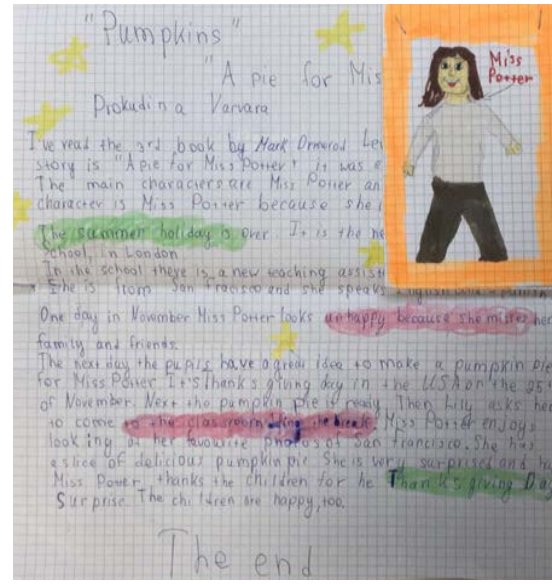 "Pumpkins"
"A pie for Mis
Miss
Potter
Prokudina Varvara
I've read the 3rd book by Mark Ormerod
story is "A pie for Miss Potter" it was
The main characters are Miss Potter an
character is Miss Potter because she
The summer holiday is over. It is the
school, in London
In the school there is a new teaching assist
She is from San Francisco and she speaks
One day in November Miss Potter looks unhappy because she misses her
family and friends.
The next day the pupils have a great idea to make a pumpkin pie
for Miss Potter. It's thanks giving day in the USA on the 25
of November. Next the pumpkin pie is ready. Then Lily asks her
to come to the classroom the break. Miss Potter enjoys
looking at her favourite photos of San Francisco. She has
a slice of delicious pumpkin pie. She is very surprised and
Miss Potter thanks the children for he Thanks giving Da
Surprise. The children are happy, too.
The end